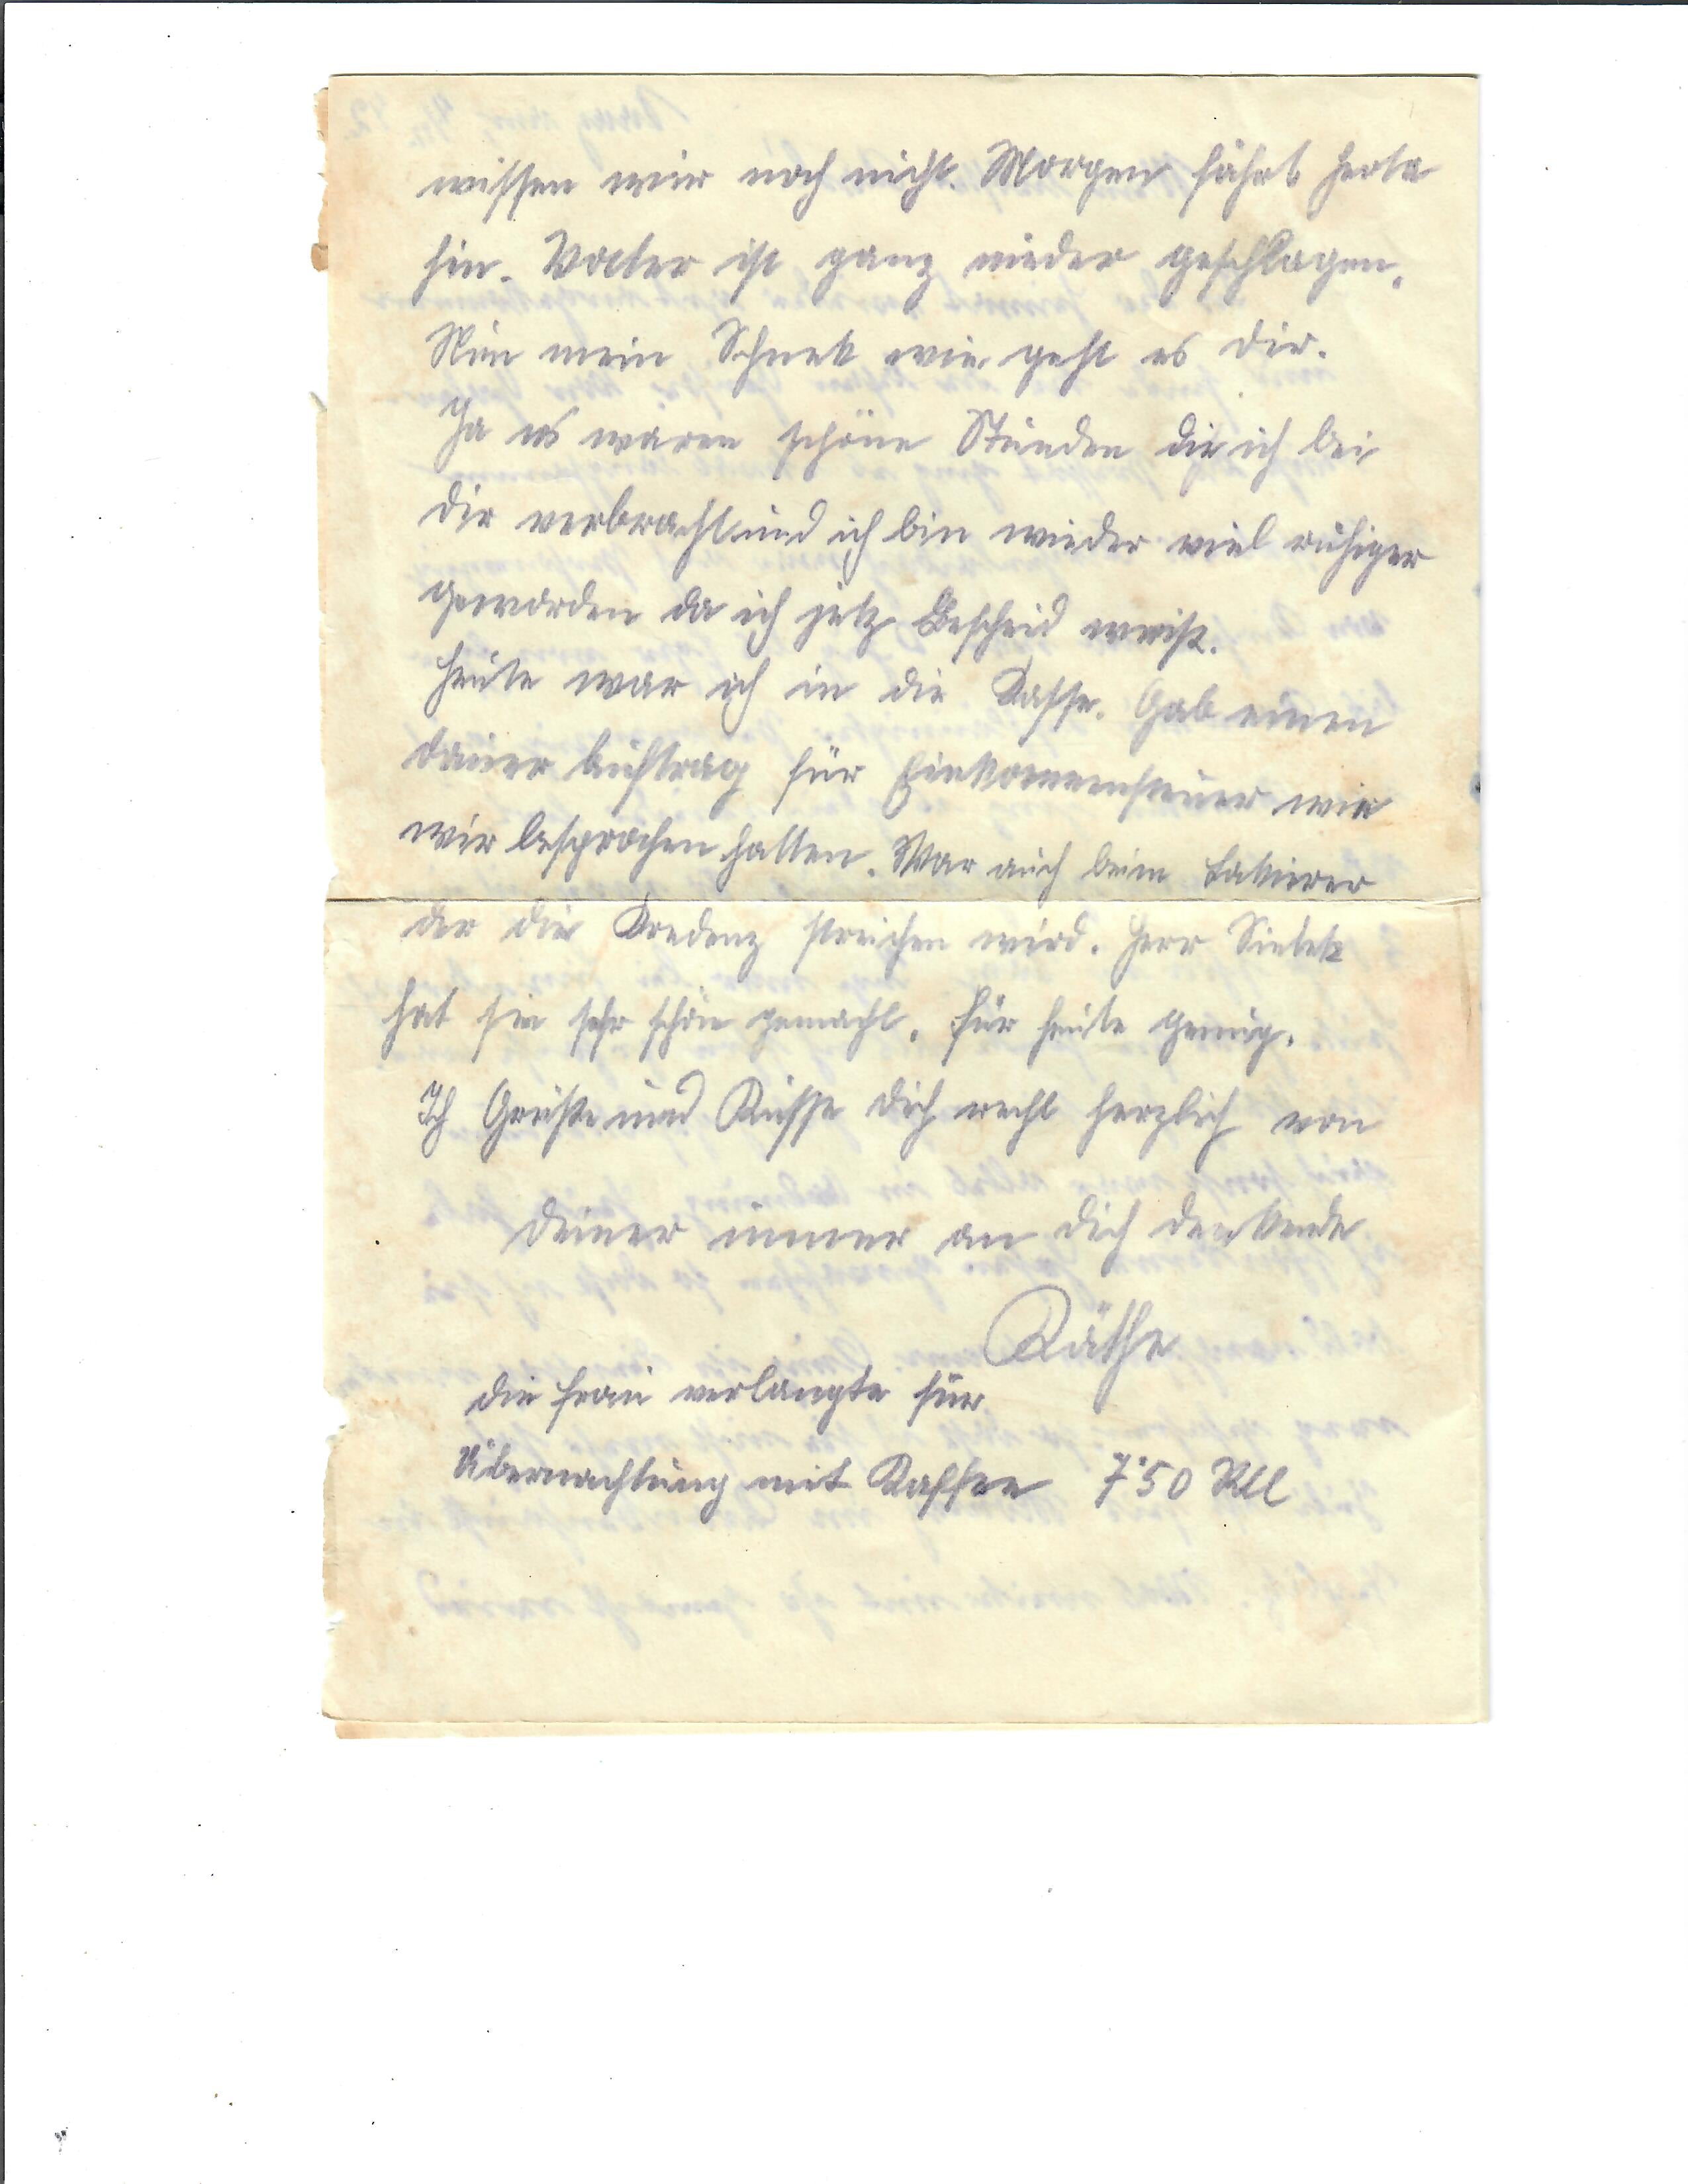 wissen wir noch nicht. Morgen fährt Herta
hin. Vater ist ganz nieder geschlagen.
Nun mein Schnek wie geht es Dir.
Ja es waren schöne Stunden die ich bei
Dir verbracht und ich bin wieder viel ruhiger
geworden da ich jetz Bescheid weiß.
Heute war ich in die Kasse. Gab einen
dauer Auftrag für Einkommensteuer wie
wir besprochen hatten. War auch beim Lakirer
der die Kredenz streichen wird. Herr
hat sie sehr schön gemacht. Für heute genug.
Ich Grüße und Küsse Dich recht herzlich von
Deiner immer an Dich denkende
Käthe
Die Frau verlangte für
Übernachtung mit Kaffee 7'50 RM